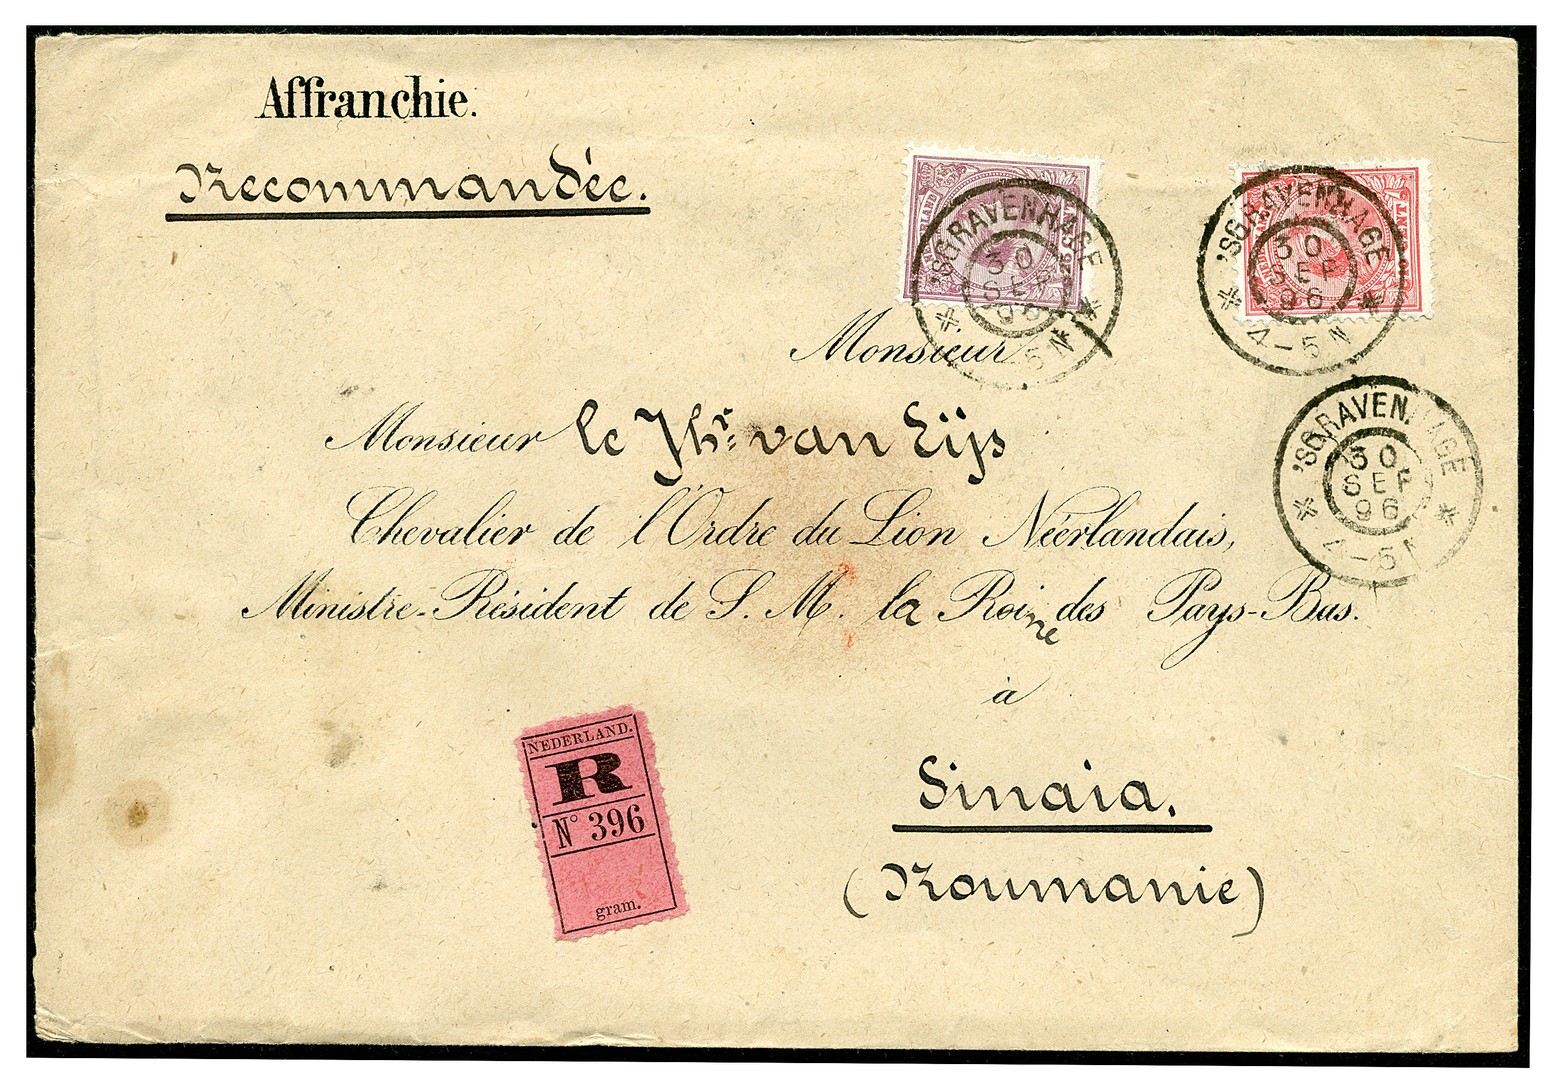 Affranchie.
Recommandée.
'SGRAVENHAGE
30
SEP
96
5 N
'SGRAVENHAGE
30
SEP
96
4-5N
Monsieur
'SGRAVENHAGE
30
SEP
96
4-5N
Monsieur le Jhr: van Eijs
Chevalier de l'Ordre du Lion Néerlandais,
Ministre-Résident de S. M. la Roine des Pays-Bas.
à
Sinaia.
(Roumanie)
NEDERLAND.
R
N° 396
gram.